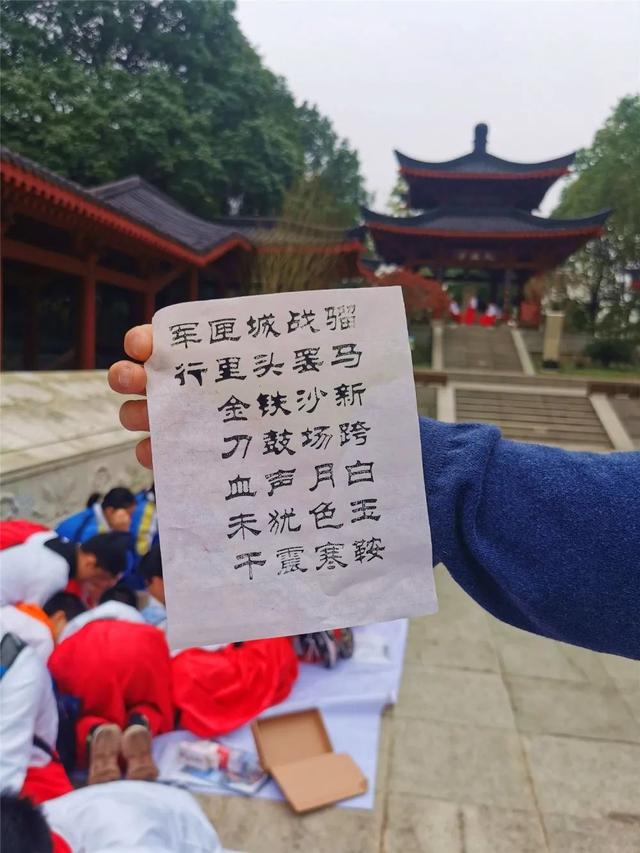 骝马新跨白玉鞍
战罢沙场月色寒
城头铁鼓声犹震
匣里金刀血未干
军行